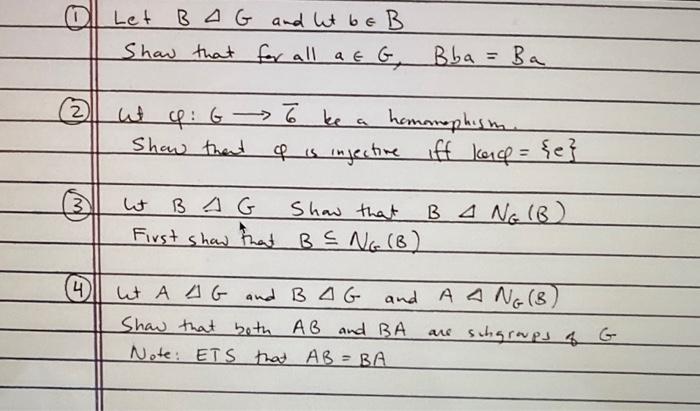 ① Let B ⊴ G and let b ∈ B
Show that for all a ∈ G, Bba = Ba
② Let φ: G → G̅ be a homomorphism.
Show that φ is injective iff kerφ = {e}
③ Let B ⊴ G Show that B ⊴ N_G(B)
First show that B ⊆ N_G(B)
④ Let A ⊴ G and B ⊴ G and A ⊴ N_G(B)
Show that both AB and BA are subgroups of G
Note: ETS that AB = BA